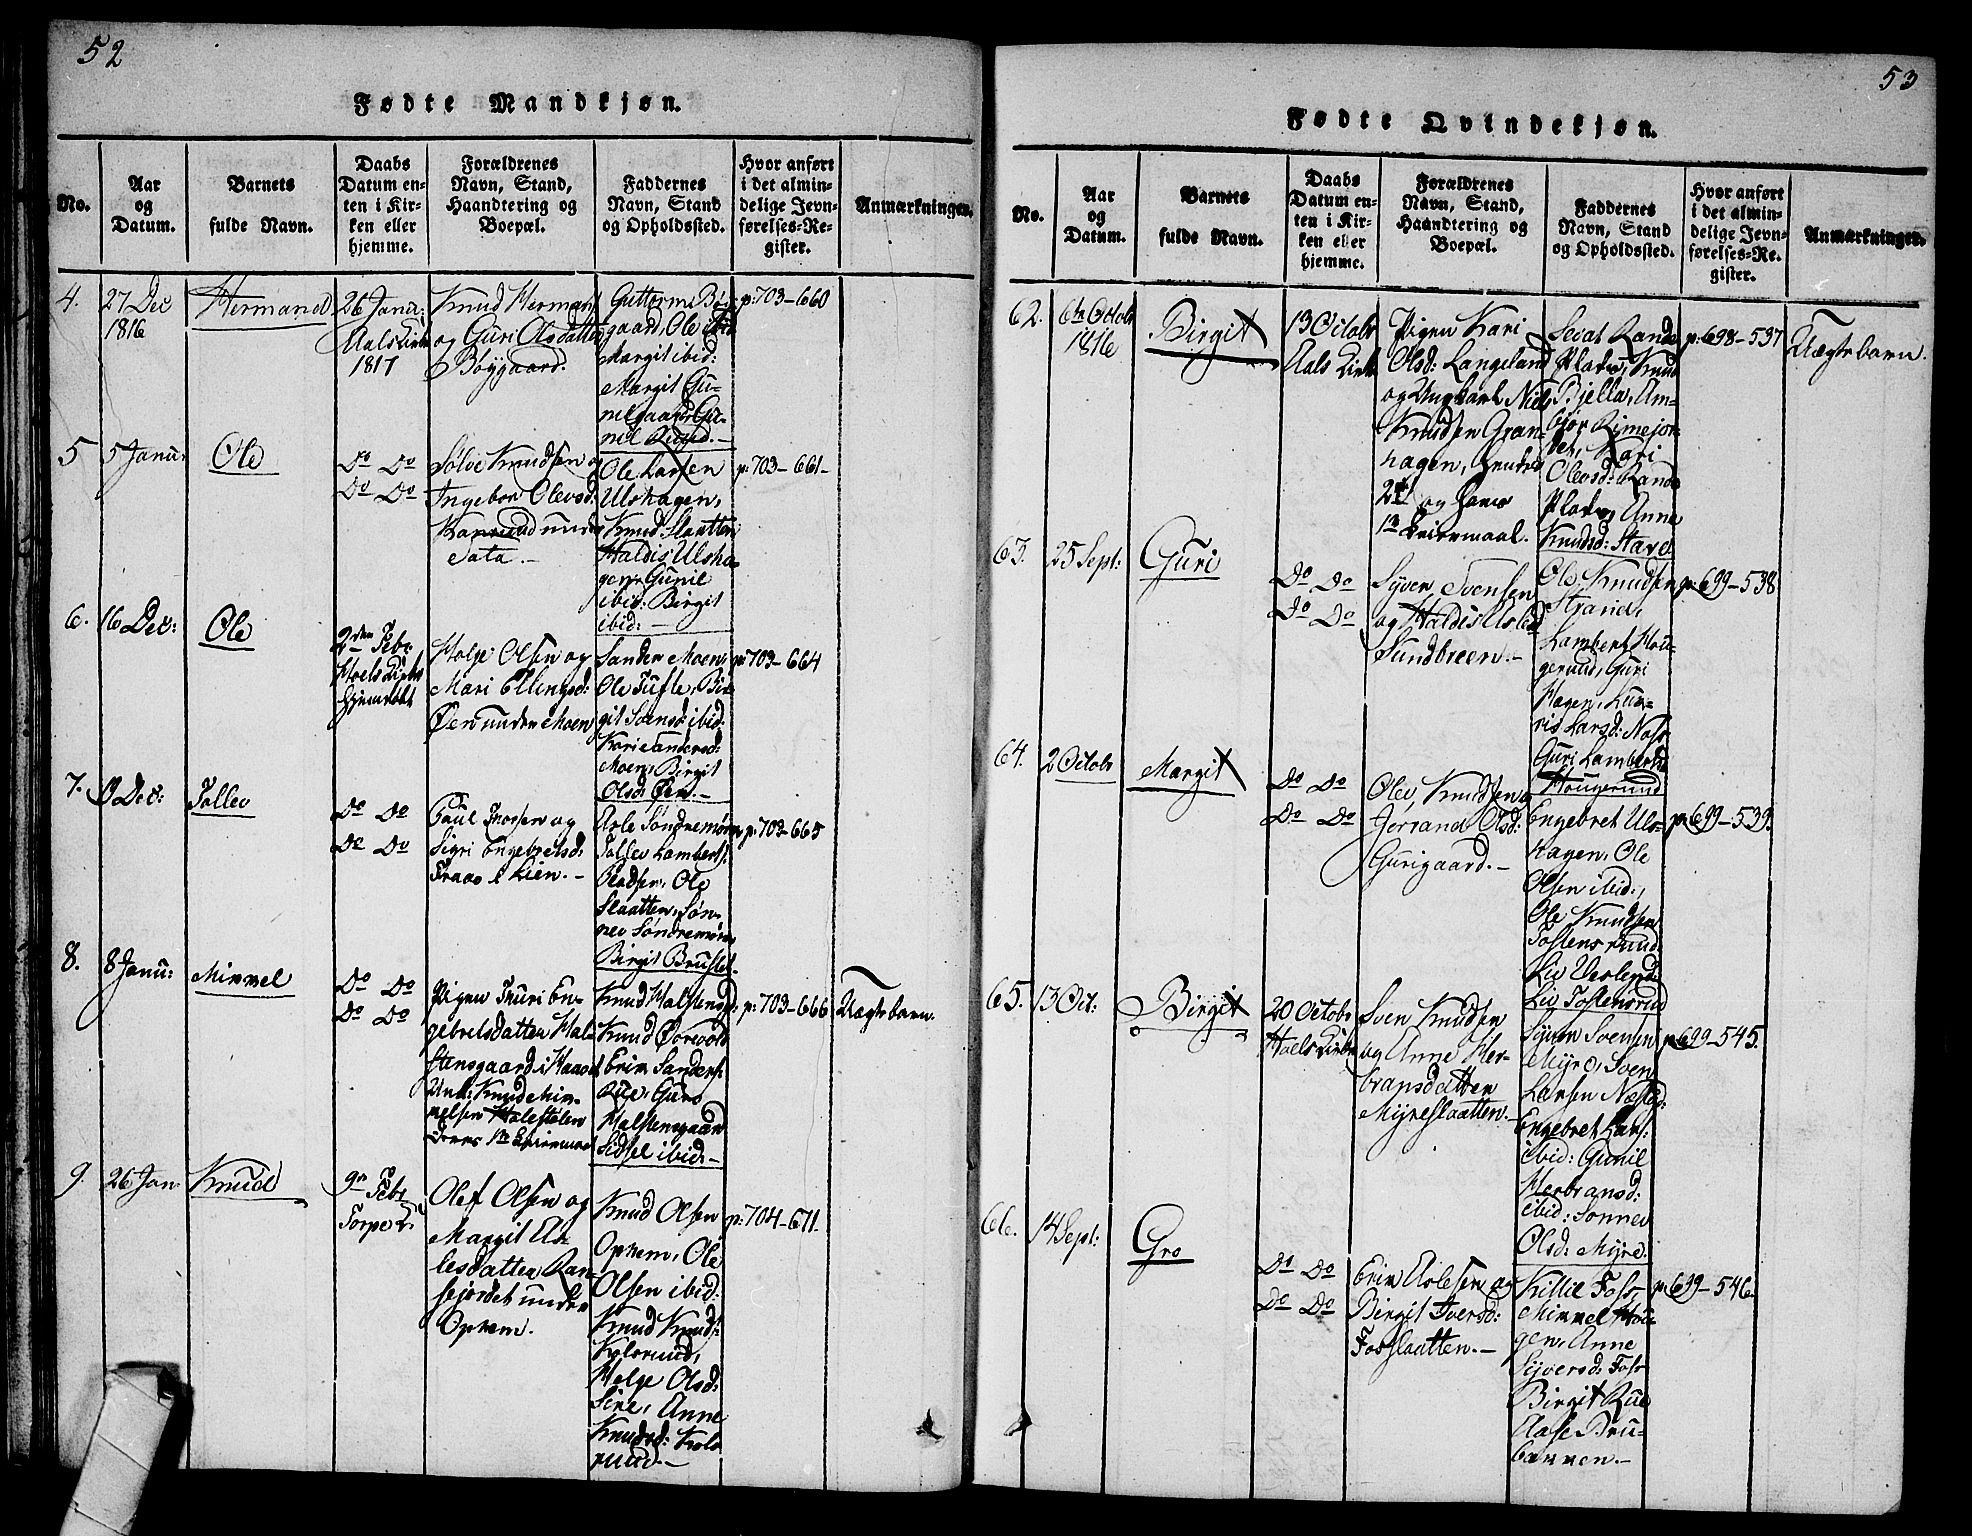 52
Fødte Mandkjøn.
No.
Aar
og
Datum.
Barnets
fulde Navn.
Daabs
Datum en-
ten i Kir-
ken eller
hjemme.
Forældrenes
Navn, Stand,
Haandtering og
Boepæl.
Faddernes
Navn, Stand
og Opholdssted.
Hvor anført
i det almin-
delige Jevn-
førelses-Re-
gister.
Anmærkninger.
4.
27 Dec
1816
Hermand
26 Janu:
Aals Kirke
1817
Knud Herman
og Guri Olsdatter
Bøygaard.
Guttorm Bøy-
gaard, Ole ibid
Margit ibid:
Margit Gu-
nilgaard, Gu-
nil Ruud.-
p: 703-660
5
5 Janu:
Ole
Do Do
Do Do
Sølve Knudsen og
Ingebor Olevsd:
Sata.-
Ole Larsen
Ulshagen,
Knud Slaatten
Haldis Ulsha-
gen, Gunil
ibid: Birgit
ibid:-
p: 703-661-
6.
16 Dec:
Ole
2den Febr
Hoels Kirke
Hjemdøbt
Holje Olsen og
Mari Ellingsd:
Øen under Moen
Sander Moen,
Ole Tufte, Bir-
git Svensd: ibid:
Kari Sandersd:
Moen, Birgit
Olsd: Øen.-
p: 703-664
7.
Dec:
Tollev
Do Do
Do Do
Paul Thorsen og
Sigri Engebretsd:
Traae i Lien.-
Asle Søndremøre
Tollev Lambertf:
Ole
Slaatten, Søn-
nev Søndremøre
Birgit Bruslet.
p: 703-665
8.
8 Janu:
Mimmel
Do Do
Do Do
Pigen Thuri En-
gebretsdatter Hal-
stensgaard i
Unk: Knud Mim-
melsen
Knud Halstensgd:
Knud
Erik Sandersf:
Rue, Guro
Halstensgaard
Sidsel ibid:-
p: 703-666
Uægte barn.
9.
26 Jan
Knud
9de Febr
Torpe K.
Olef Olsen og
Margit As-
lesdatter Ran-
fejordet under
Ophem.
Knud Olsen
Ophem, Ole
Olsen ibid:
Knud Knuds:
Kolsrund,
Helge Olsd:
Sire, Anne
Knudsd: Kols-
ruud.-
p: 704-671.
53
Fødte Qvindekjøn.
No.
Aar
og
Datum.
Barnets
fulde Navn.
Daabs
Datum en-
ten i Kir-
ken eller
hjemme.
Forældrenes
Navn, Stand,
Haandtering og
Boepæl.
Faddernes
Navn, Stand
og Opholdssted.
Hvor anført
i det almin-
delige Jevn-
førelses-Re-
gister.
Anmærkninger.
62.
6te Octobr
1816
Birgit
13 Octobr
Aals Kirke
Pigen Kari
Olsd: Langeland
og Ungkarl Niels
Knudsen Gran-
hagen, hendes
2det og hans
1ste Leiermaal.
Sevat Rande
Pladen, Knud
Bjella, Am-
bjør Rimejor-
det, Kari
Olevsd: Rande
Pladen, Anne
Knudsd: Stave
p: 698-537
Uægte barn.
63.
25 Sept:
Guri
Do Do
Do Do
Syver Svensen
og Haldis Asled:
Sundbreen.-
Ole Knudsen
Strand,
Lambert Hou-
gerud, Guri
Hagen, Lar-
ris Larsd: Noss
Guri Lambertsd:
Hougerund
p: 699-538
64.
2 Octobr
Margit
Do Do
Do Do
Olev Knudsen og
Jorrand Olsd:
Gurigaard.-
Engebret Uls-
hagen, Ole
Olsen ibid:,
Ole Knudsen
Tostensruud
Liv
Liv Tostensrud
p: 699-539.
65.
13 Oct:
Birgit
20 Octobr
Hoels Kirke
Sven Knudsen
og Anne Her-
bransdatter
Myreslaatten.-
Syver Svensen
Myre, Sven
Larsen
Engebret Lars:
ibid: Gunil
Herbransd:
ibid: Sønnev
Olsd: Myre.
p: 699-545.
66.
14 Sept:
Gro
Do Do
Do Do
Erik Aslesen og
Birgit Iversd:
Fosslaatten.-
Killil Foss,
Mimmel Hou-
gen, Anne
Syversd: Foss
Birgit Rue
Aase Bru-
bakken.-
p: 699-546.